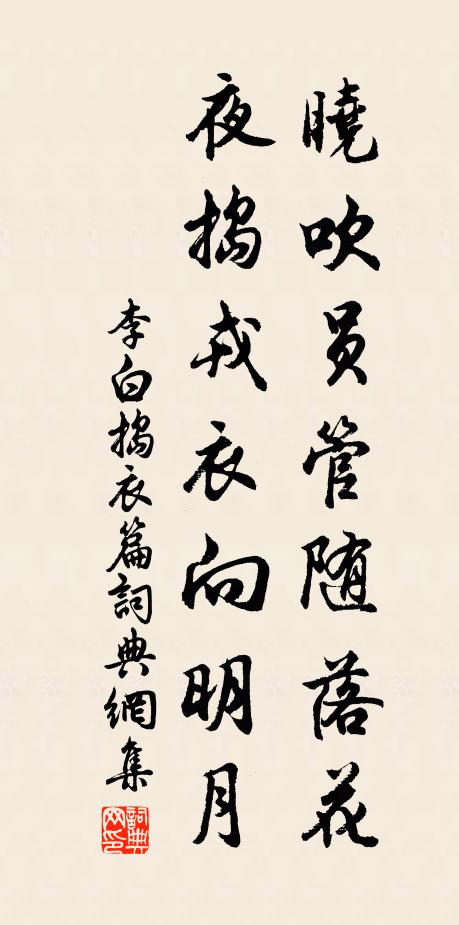 曉吹员管随落花
夜搗戎衣向明月
李白搗衣篇詞典網集
詞典网印